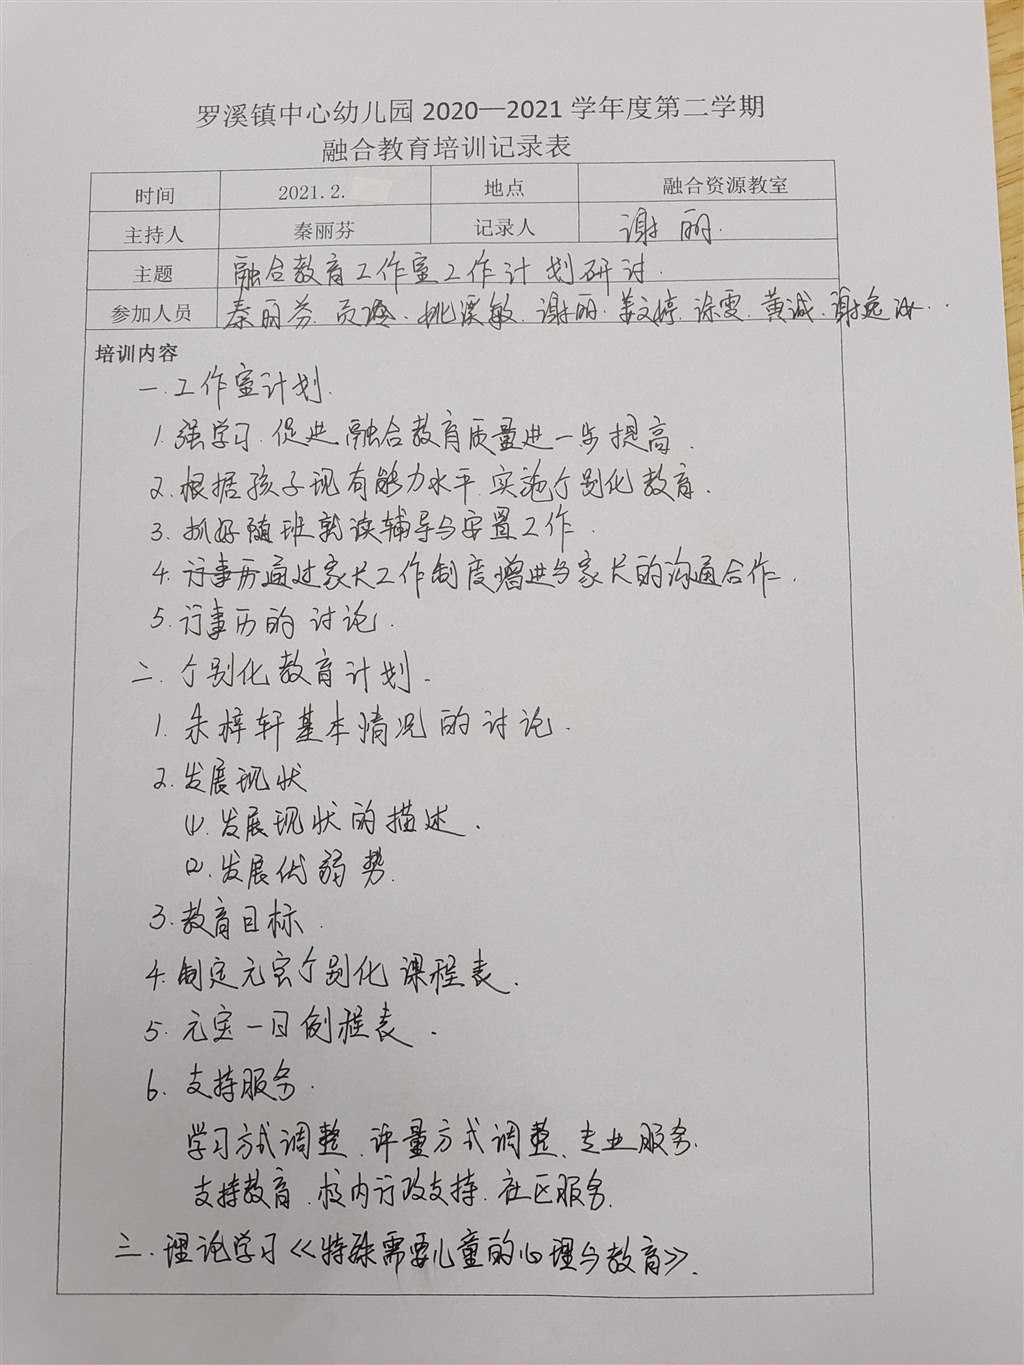 罗溪镇中心幼儿园 2020—2021 学年度第二学期
融合教育培训记录表
时间 2021.2. 地点 融合资源教室
主持人 秦丽芬 记录人 谢丽.
主题 融合教育工作室工作计划研讨.
参加人员 秦丽芬. 姚溪敏. 谢丽. 姜文婷. 徐雯. 黄诚. 谢逸
培训内容
一. 工作室计划.
1. 强学习. 促进融合教育质量进一步提高.
2. 根据孩子现有能力水平. 实施个别化教育.
3. 抓好随班就读辅导与安置工作.
4. 行事历通过家长工作制度增进与家长的沟通合作.
5. 行事历的讨论.
二. 个别化教育计划.
1. 朱梓轩基本情况的讨论.
2. 发展现状
(1). 发展现状的描述.
(2). 发展优弱势.
3. 教育目标.
4. 制定元宝个别化课程表.
5. 元宝一日例程表.
6. 支持服务.
学习方式调整、评量方式调整、专业服务.
支持教育. 校内行政支持. 社区服务.
三. 理论学习《特殊需要儿童的心理与教育》.